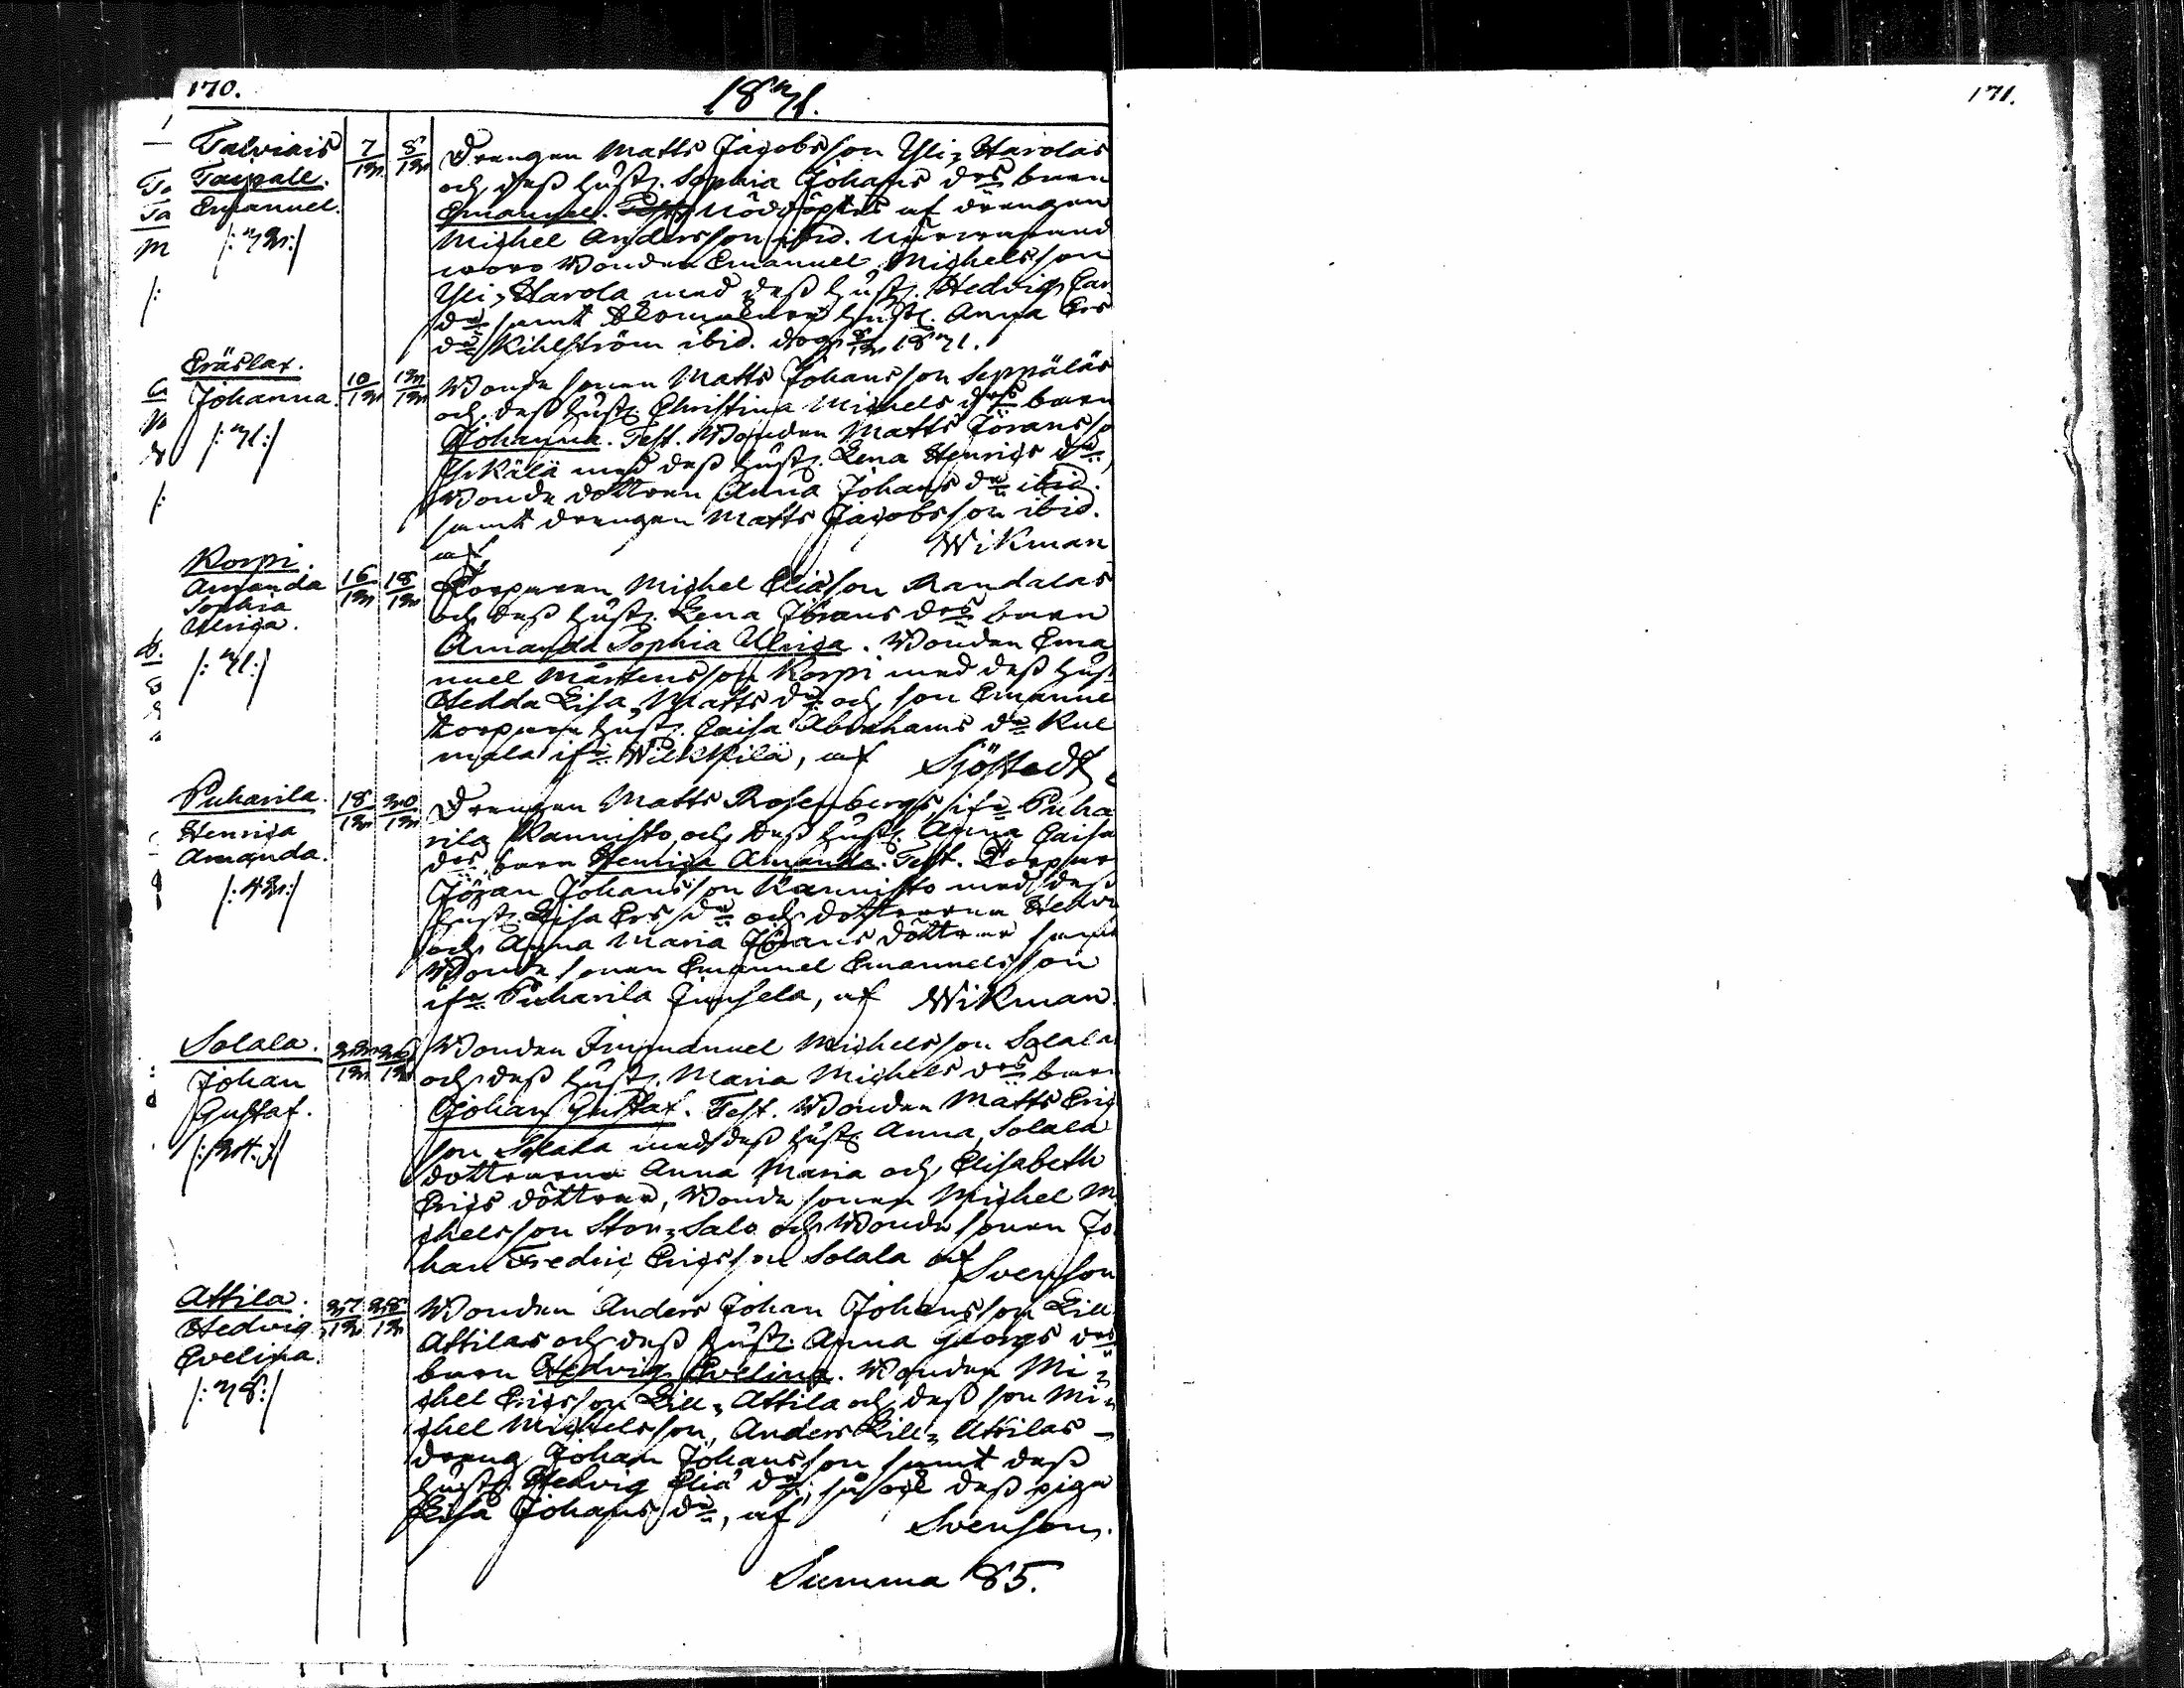 170.
1821.
171.
Talviais
Taipale.
Emanuel.
/: 22:/
7/12
8/12
Drengen Matts Jacobsson Yli=Harolas
och dess hust. Sophia Johans drs barn
Emanuel. Nöddöptes af drengen
Michel Andersson ibid. Närvarand
woro Bonden Emanuel Michelsson
Yli=Harola med dess hust. Hedvig Car
dr samt hust. Anna Ers
dr Kihlström ibid. 8/12 1821.
Eräslax.
Johanna.
/: 21:/
10/12
12/12
Bonde sonen Matts Johansson Seppäläs
och dess hust. Christina Michels drs barn
Johanna. Test. Bonden Matts Joransso
med dess hust. Lena Henrics dr,
Bonde dottren Anna Johans dr ibid.
samt drengen Matts Jacobsson ibid.
af Wikman
Korpi.
Amanda
Sophia
Ulrica.
/: 21:/
16/12
18/12
Torparen Michel Eliasson Randalas
och dess hust. Lena Jorans drs barn
Amanda Sophia Ulrica. Bonden Ema
nuel Mårtensson Korpi med dess hust
Hedda Lisa Matts dr och son Emanue
torpare hust. Caisa Abrahams dr Kul
mala ifn Wilkkilä, af Sjöstedt
Puharila.
Henrica
Amanda.
/: 42:/
18/12
20/12
Drengen Matts Rosenbergs ifn Puha
rila Kannisto och dess hust. Anna Caisa
drs barn Henrica Amanda. Test. Torpar
Jöran Johansson Kannisto med dess
hust. Lisa Ers dr och dottrarna Hedvi
och Anna Maria Jorans döttrar samt
Bonde sonen Emanuel Emanuelsson
ifn Puharila Junsela, af Wikman.
Solala.
Johan
Gustaf.
/: 24:/
22/12
26/12
Bonden Immanuel Michelsson Solala
och dess hust. Maria Michels drs barn
Johan Gustaf. Test. Bonden Matts Eric
son Solala med dess hust. Anna, Solala
dottrarna Anna Maria och Elisabeth
Erics döttrar, Bonde sonen Michel Mi
chelsson Stor=Salo och Bonde sonen Jo
han Fredric Ericsson Solala af Svenson
Attila.
Hedvig
Evelina.
/: 28:/
27/12
28/12
Bonden Anders Johan Johansson Lill
Attilas och dess hust. Anna Georgs drs
barn Hedvig Evelina. Bonden Mi=
chel Ericsson Lill=Attila och dess son Mi=
chel Michelsson, Anders Lill=Attilas
dreng Johan Johansson samt dess
hust. Hedvig Elia dr, såväl dess piga
Lisa Johans dr, af Svenson.
Summa 85.